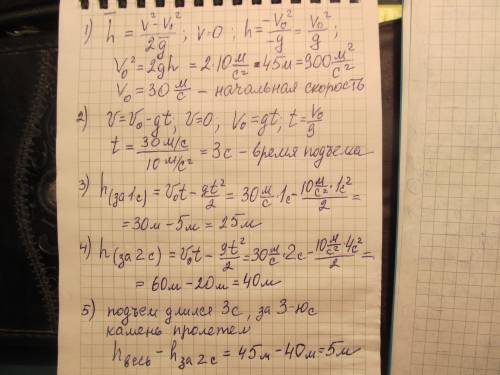 1) h̅ = (v² − v₀²)/(2g̅); v=0; h = (−v₀²)/(−g) = v₀²/g;
v₀² = 2gh = 2·10 м/с² · 45м = 900 м²/с²
v₀ = 30 м/с – начальная скорость
2) v = v₀ − gt, v=0, v₀ = gt; t = v₀/g
t = (30 м/с)/(10 м/с²) = 3с – время подъема
3) h(за 1с) = v₀t − gt²/2 = 30 м/с · 1с − (10 м/с² · 1с²)/2 =
= 30м – 5м = 25м
4) h(за 2с) = v₀t − gt²/2 = 30 м/с · 2с − (10 м/с² · 4с²)/2 =
= 60м – 20м = 40м
5) подъем длился 3с, за 3-юс
камень пролетел
hвесь – hза 2с = 45м – 40м = 5м